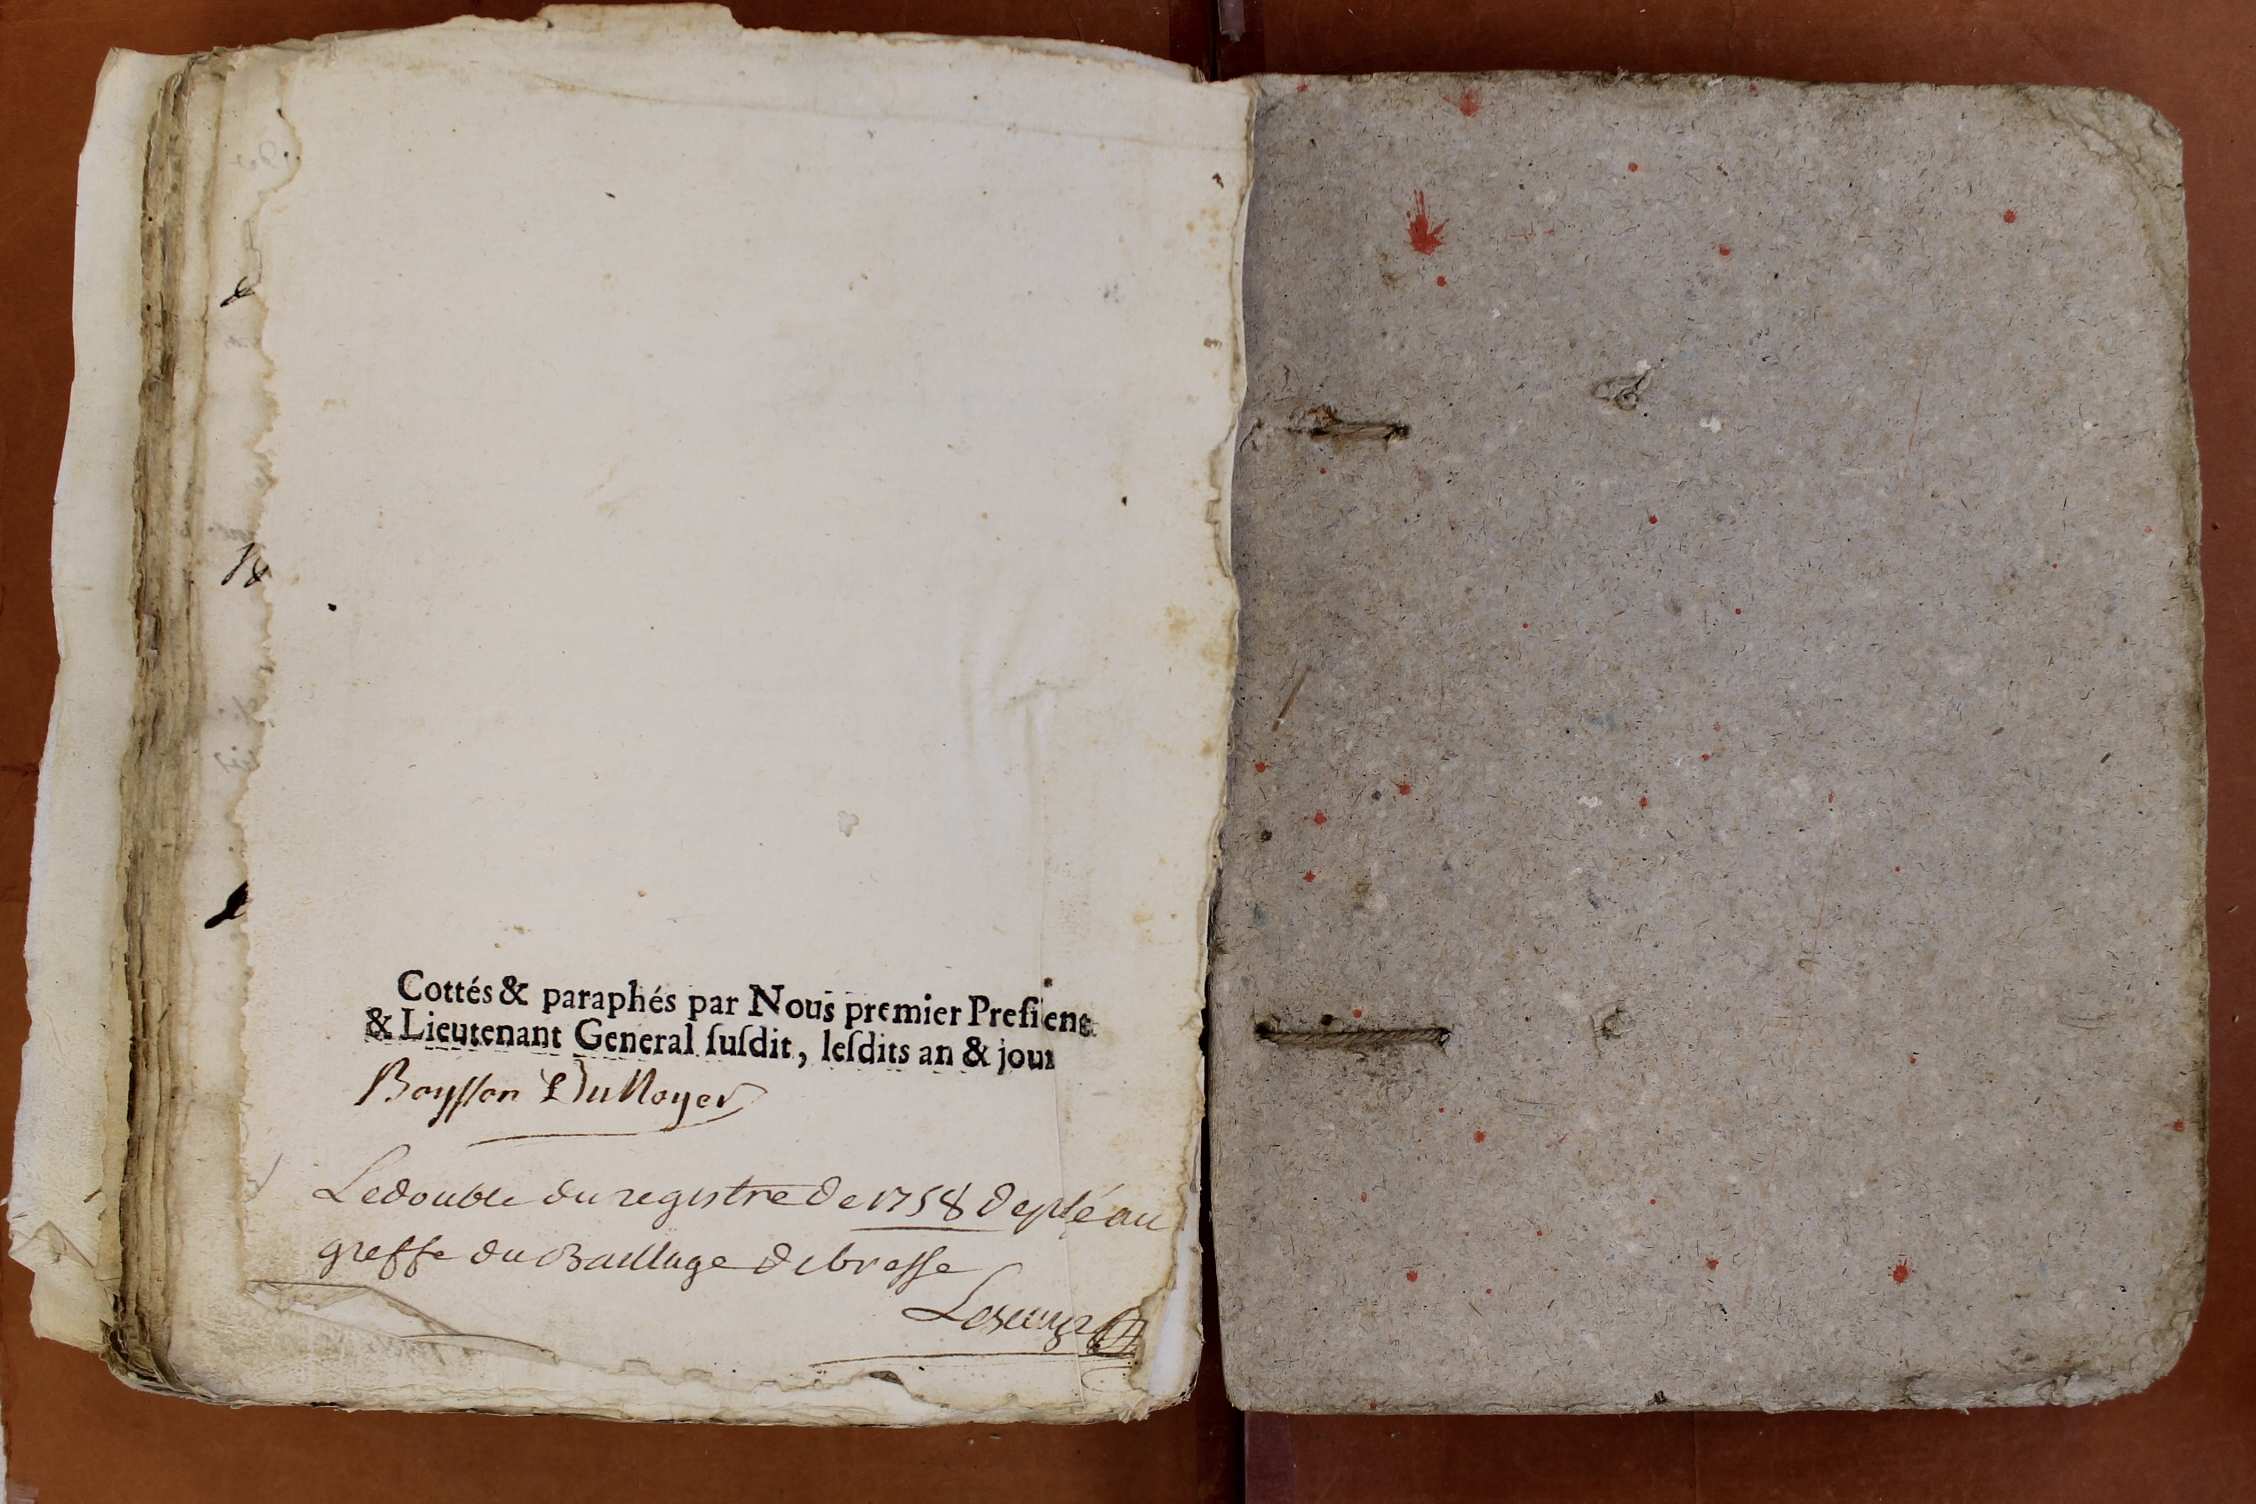 Cottés & paraphés par Nous premier Presi ent
& Lieutenant General susdit, lesdits an & jour
Boysson DuNoyer
Ledouble du registre de 1758 depsé au
greffe du Baillage de bresse